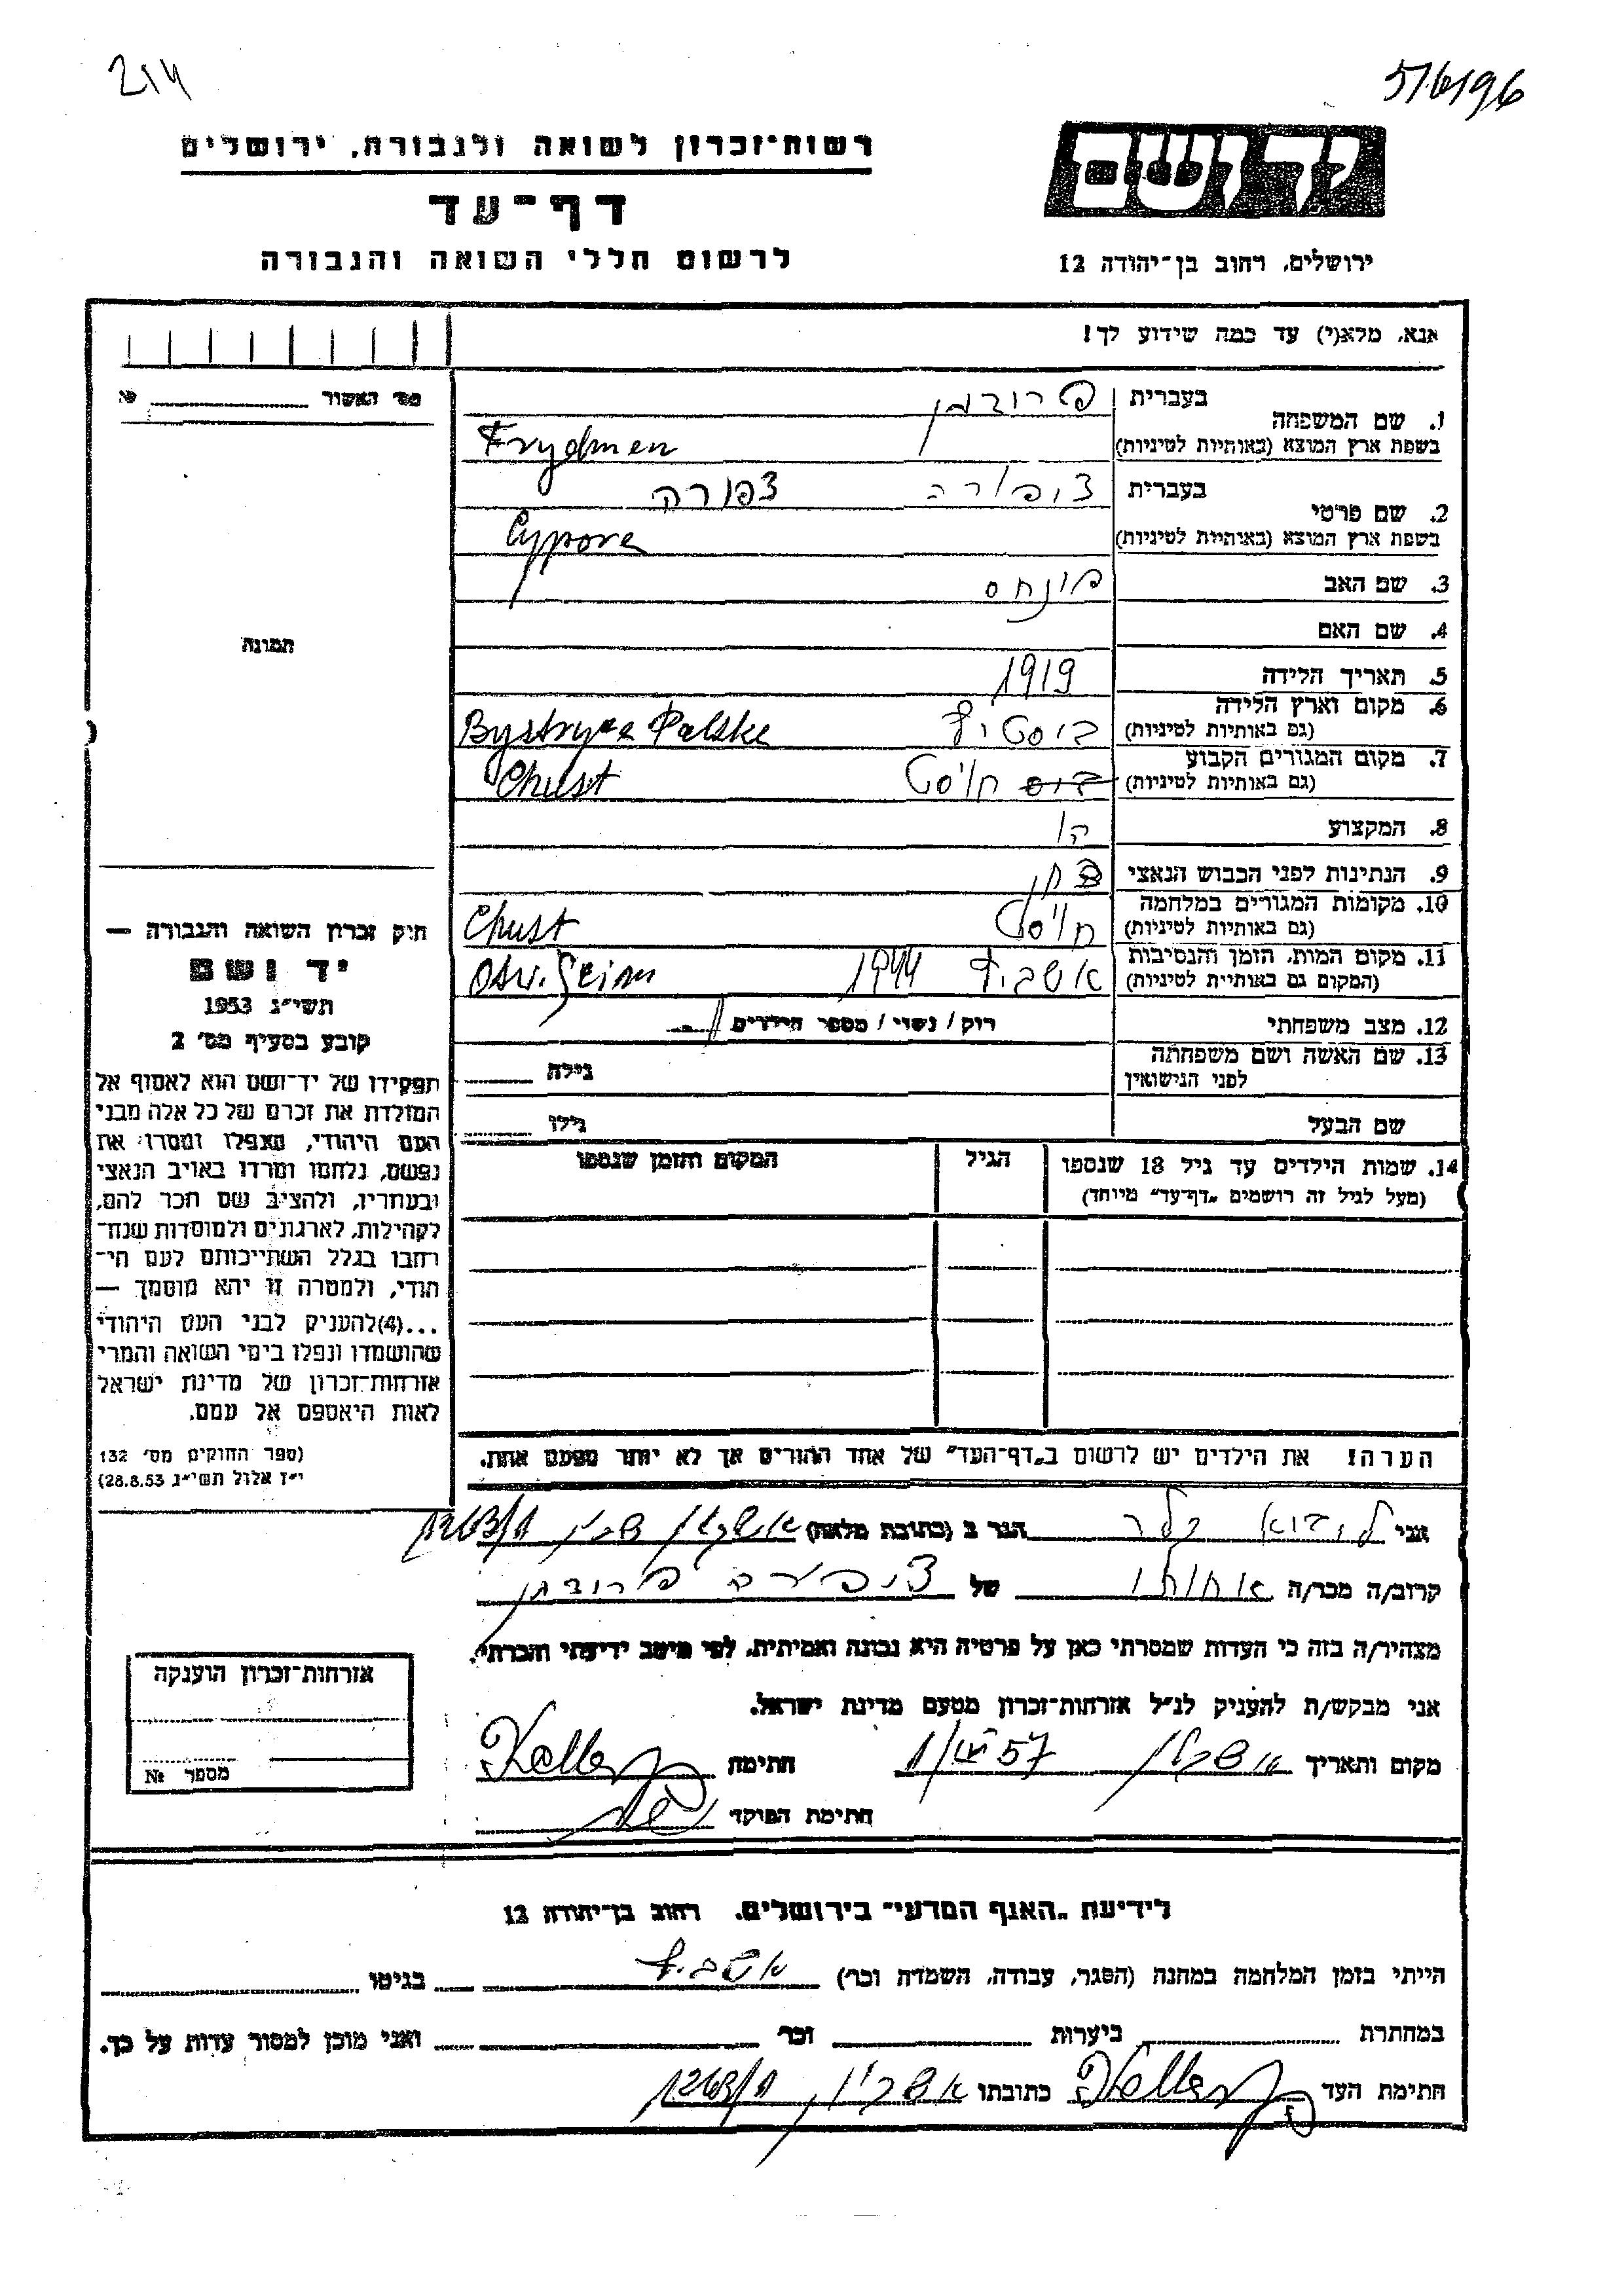 214
5/6/96
יד ושם
רשות-זכרון לשואה ולגבורה, ירושלים
דף-עד
לרשום חללי השואה והגבורה
ירושלים, רחוב בן-יהודה 12
אנא, מלא(י) עד כמה שידוע לך!
מס' האשור №
1. שם המשפחה
בעברית פרידמן
בשפת ארץ המוצא (באותיות לטיניות) Frydmen
2. שם פרטי
בעברית ציפורה צפורה
בשפת ארץ המוצא (באותיות לטיניות) Cypora
3. שם האב פינחס
4. שם האם
5. תאריך הלידה 1919
6. מקום וארץ הלידה
(גם באותיות לטיניות)
7. מקום המגורים הקבוע
(גם באותיות לטיניות) חוסט Chust
8. המקצוע
9. הנתינות לפני הכבוש הנאצי
10. מקומות המגורים במלחמה
(גם באותיות לטיניות) חוסט Chust
11. מקום המות, הזמן והנסיבות
(המקום גם באותיות לטיניות) אשביץ 1944
12. מצב משפחתי רוק / נשוי / מספר הילדים
13. שם האשה ושם משפחתה
לפני הנישואין גילה
שם הבעל גילו
14. שמות הילדים עד גיל 18 שנספו
(מעל לגיל זה רושמים "דף-עד" מיוחד)
הגיל
המקום והזמן שנספו
הערה! את הילדים יש לרשום ב"דף-העד" של אחד ההורים אך לא יותר מפעם אחת.
תמונה
חוק זכרון השואה והגבורה —
יד ושם
תשי"ג 1953
קובע בסעיף מס' 2
תפקידו של יד-ושם הוא לאסוף אל
המולדת את זכרם של כל אלה מבני
העם היהודי, שנפלו ומסרו את
נפשם, נלחמו ומרדו באויב הנאצי
ובעוזריו, ולהציב שם וזכר להם,
לקהילות, לארגונים ולמוסדות שנח-
רבו בגלל השתייכותם לעם הי-
הודי, ולמטרה זו יהא מוסמך —
...(4) להעניק לבני העם היהודי
שהושמדו ונפלו בימי השואה והמרי
אזרחות-זכרון של מדינת ישראל
לאות היאספם אל עמם.
(ספר החוקים מס' 132
י"ז אלול תשי"ג 28.8.53)
אני קלר הגר ב (כתובת מלאה) אשקלון
קרוב/ה מכר/ה אחותי של ציפורה פרידמן
מצהיר/ה בזה כי העדות שמסרתי כאן על פרטיה היא נכונה ואמיתית, לפי מיטב ידיעתי והכרתי.
אני מבקש/ת להעניק לנ"ל אזרחות-זכרון מטעם מדינת ישראל.
מקום ותאריך אשקלון חתימה Keller
חתימת הפוקד
אזרחות-זכרון הוענקה
מספר №
לידיעת "האגף המדעי" בירושלים, רחוב בן-יהודה 12
הייתי בזמן המלחמה במחנה (הסגר, עבודה, השמדה וכו') אשביץ בגיטו
במחתרת ביערות וכו' ואני מוכן למסור עדות על כך.
חתימת העד Keller כתובתו אשקלון